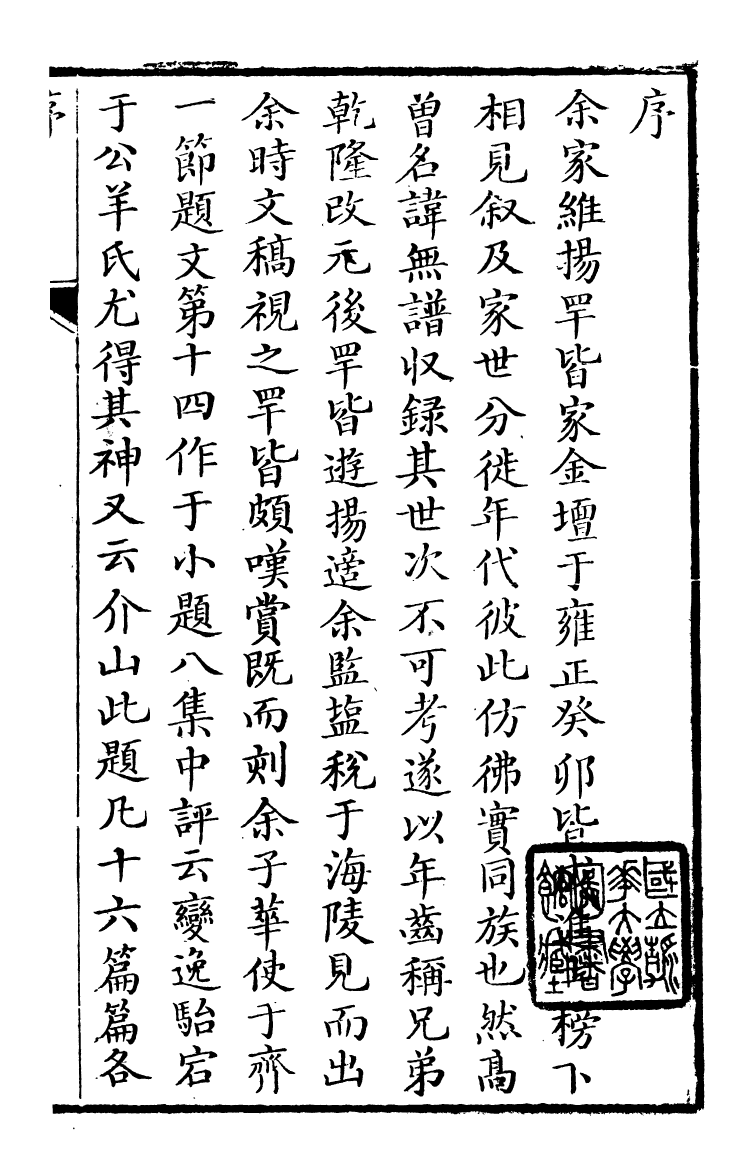 序
余家維揚罕皆家金壇于雍正癸卯皆榜下
相見叙及家世分徙年代彼此仿彿實同族也然高
曽名諱無譜收録其世次不可考遂以年齒稱兄弟
乾隆改元後罕皆遊揚適余監塩稅于海陵見而出
余時文稿視之罕皆頗嘆賞既而刻余子華使于齊
一節題文第十四作于小題八集中評云變逸駘宕
于公羊氏尤得其神又云介山此題凡十六篇篇各
序
國立清華大學圖書館藏